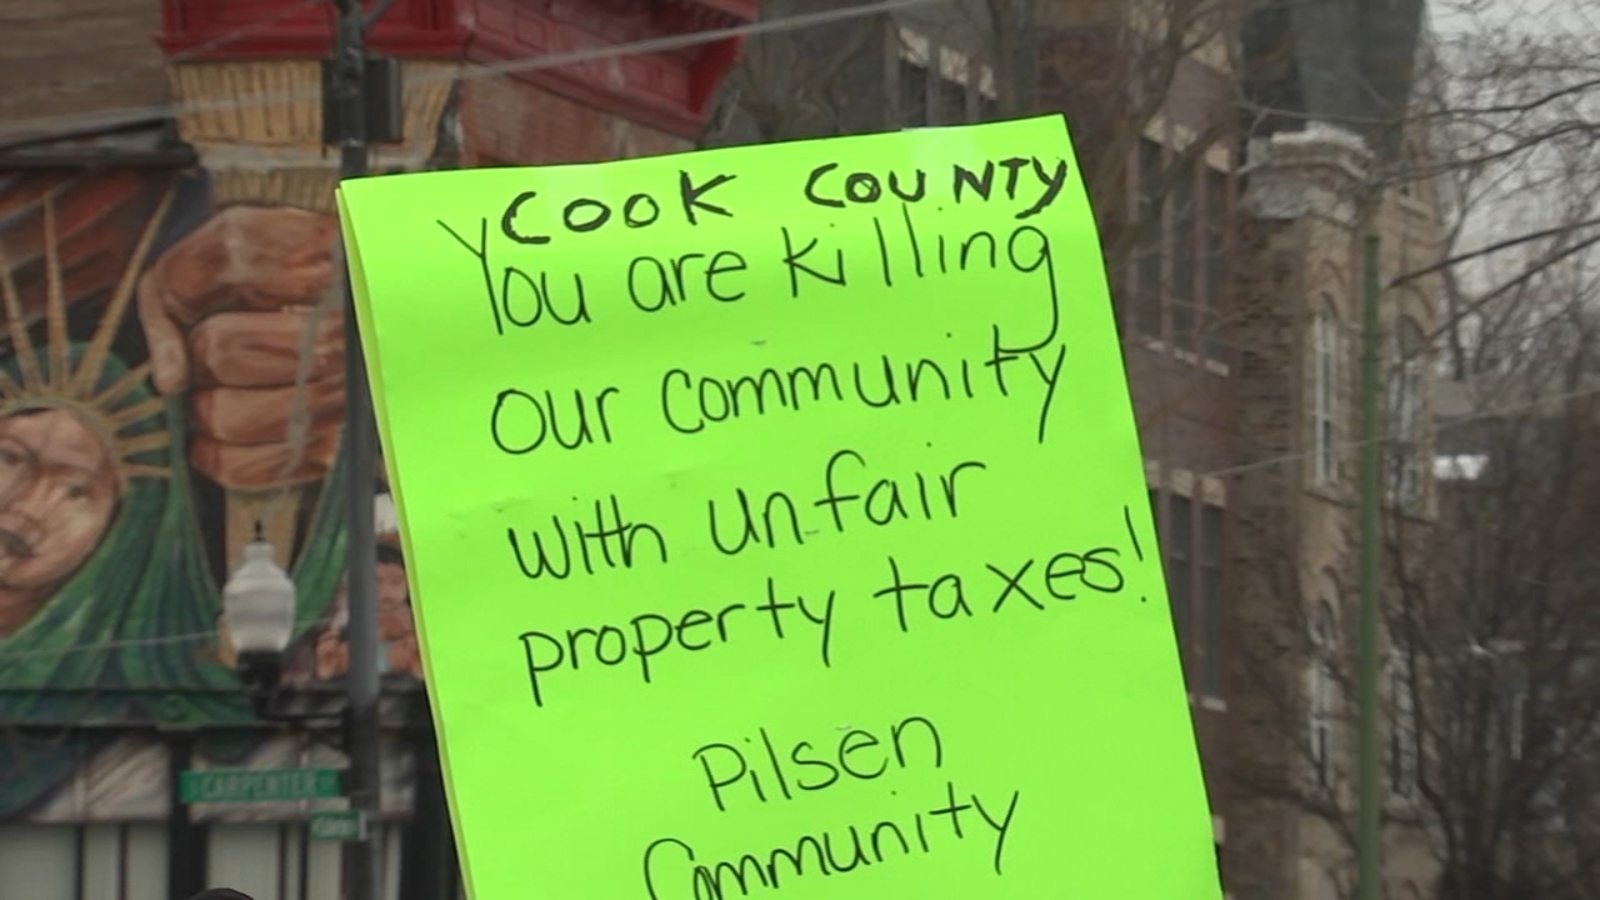 COOK COUNTY
You are killing
our community
with unfair
property taxes!
Pilsen
Community
CARPENTER